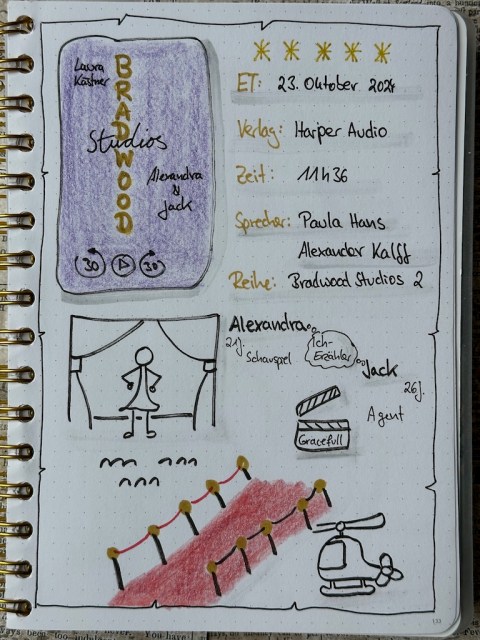 Laura
Kästner
BRADWOOD
Studios
Alexandra
&
Jack
30
30
ET: 23. Oktober 2024
Verlag: Harper Audio
Zeit: 11h36
Sprecher: Paula Hans
Alexander Kalff
Reihe: Bradwood Studios 2
Alexandra
21J.
Schauspiel
Ich-
Erzähler
Jack
26J.
Agent
Gracefull
133